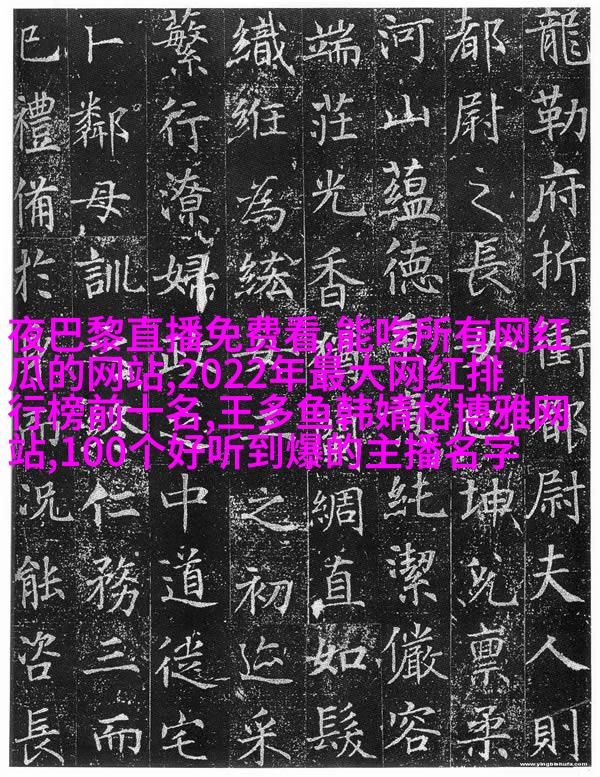 龍勒府折衝都尉夫人則
都尉之長女坤皃稟柔
河山蘊德純潔儼容
端莊光香綢直如髮
織紝為女之初迩采
蘩行潦婦政中道徙宅
卜鄰母訓仁務三而
已禮備於況能咨長
夜巴黎直播免费看,能吃所有网红
瓜的网站,2022年最大网红排
行榜前十名,王多鱼韩婧格博雅网
站,100个好听到爆的主播名字
www.yingbishufa.com